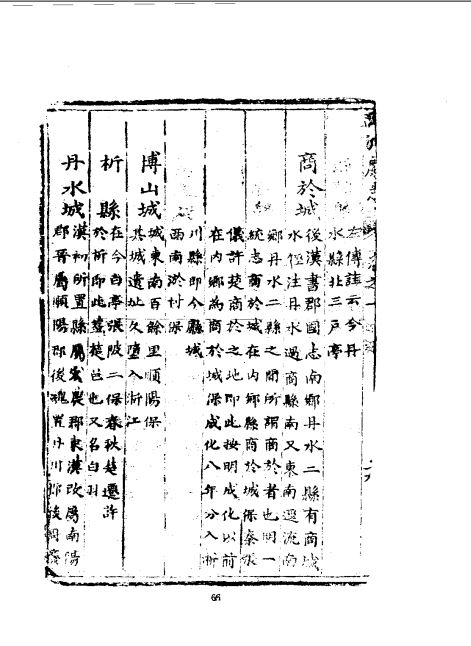 左傳註云今丹
水縣北三戶亭
商於城
後漢書郡國志南鄉丹水二縣有商城
水經注丹水過商縣南又東南逕流南
鄉丹水二縣之間所謂商於者也明一
統志商於城在內鄉縣商於城保秦張
儀許楚商於之地即此按明成化以前
在內鄉為商於城保成化八年分入淅
川縣即今縣城
西南淤村保
博山城
城東南百餘里順陽保
其城遺址久墮入淅江
析縣
在今白亭張陂二保春秋楚遷許
於析即此葢楚邑也又名白羽
丹水城
漢初所置縣屬弘農郡東漢改屬南陽
郡晉屬順陽郡後魏置丹川郡後周廢
66